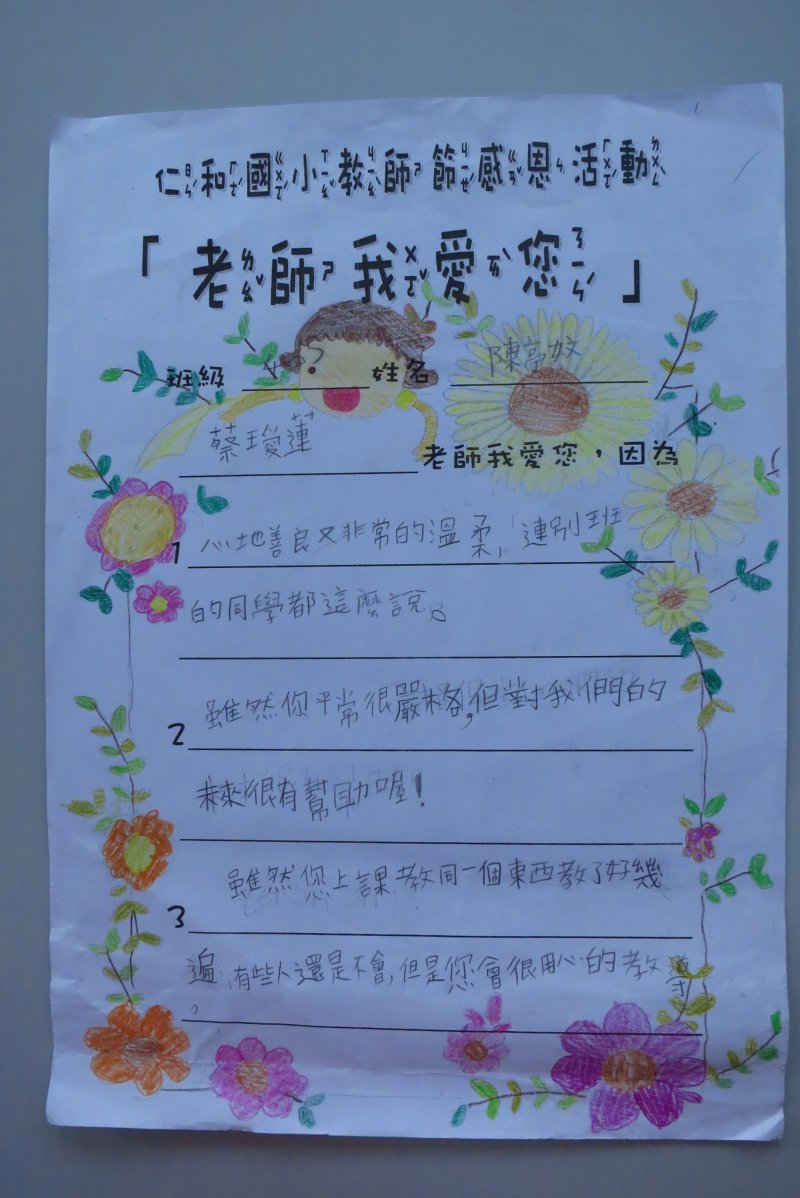 仁和國小教師節感恩活動
「老師我愛您」
班級 姓名 陳亭妏
蔡璦蓮 老師我愛您，因為
1 心地善良又非常的溫柔,連別班
的同學都這麼說。
2 雖然你平常很嚴格,但對我們的
未來很有幫助喔!
3 雖然您上課教同一個東西教了好幾
遍,有些人還是不會,但是您會很用心的教導
。